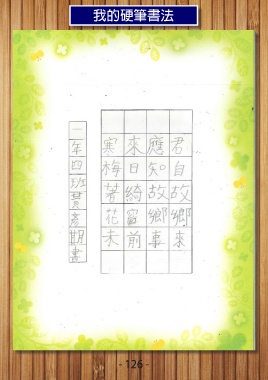 我的硬筆書法
君自故鄉來
應知故鄉事
來日綺窗前
寒梅著花未
一年四班彥期書
- 126 -